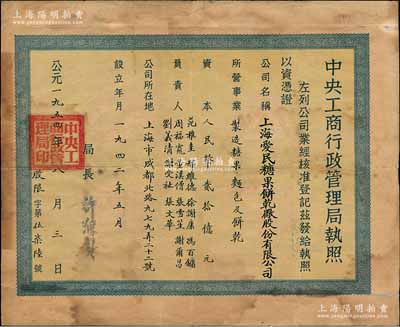 上海陽明拍賣
www.yangmingauction.com
中央工商行政管理局執照
左列公司業經核准登記茲發給執照
以資憑證
公司名稱 上海愛民糖果餅乾廠股份有限公司
所營事業 製造糖果麵包及餅乾
資本 人民幣貳拾億元
負責人
周福
劉義清 謝文社 張文華
公司所在地 上海市成都北路九七九弄二十二號
設立年月 一九四二年五月
局長
公元一九五四年八月三日
股限字第伍柒陸號
中央工
商行政管
理局印
上海陽明拍賣